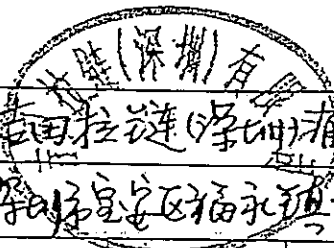 (深圳)有限
吉田拉链(深圳)有
深圳市宝安区福永镇